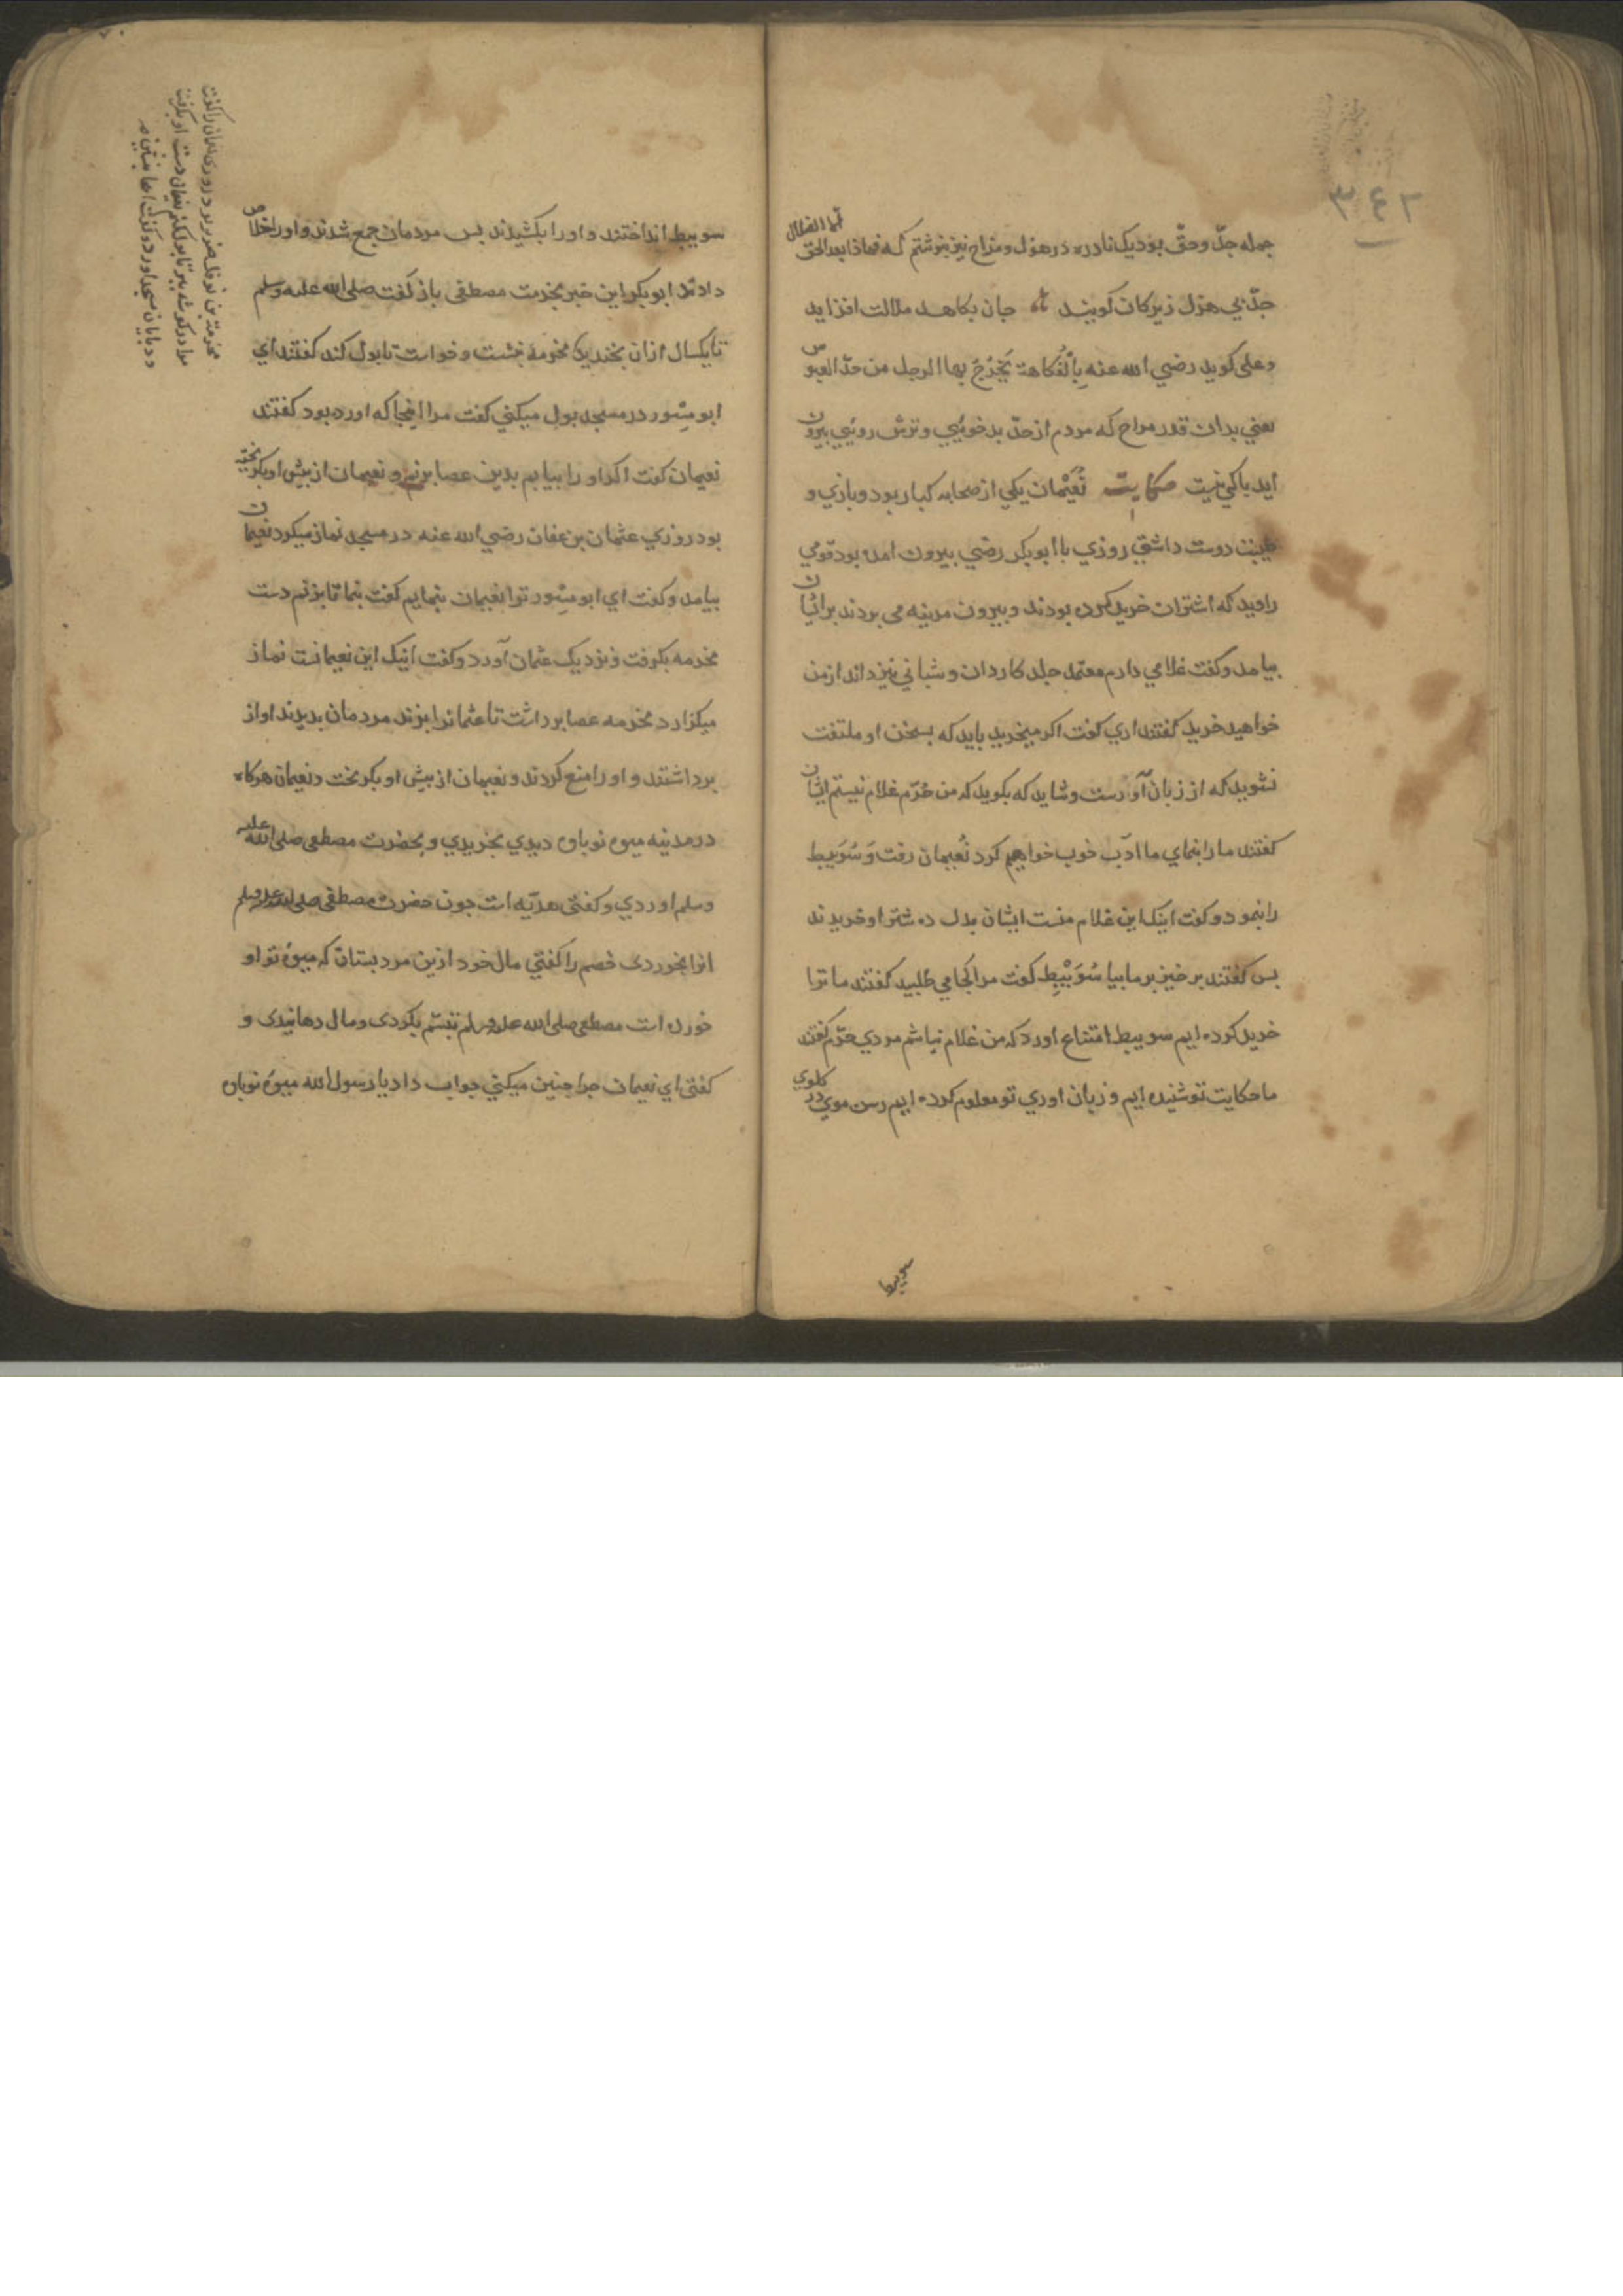 ٣٤٢
جمله جدّ و حقّ بود یک نادره در هزل و مزاح نیز بنوشتم که فماذا بعد الحق الّا الضلال
جدّ بی هزل زیرکان کویند جان بکاهد ملالت افزاید
و علی کوید رضي الله عنه بِالْفُكاهة یَخْرُجُ بها الرجل من حدّ العبوس
یعني بدان قدر مزاح که مردم از حدّ بدخوئیي و ترش روئیي بیرون
اید باکي نیست حکایت نُعَیْمان یکي از صحابه کبار بود و بازي و
طیبت دوست داشتي روزي با ابوبکر رضي بیرون امده بود قومي
را دید که اشتران خرید کرده بودند و بیرون مدینه می بردند بر ایشان
بیامد و کفت غلامي دارم معتمد جلد کاردان و شباني نیز داند از من
خواهید خرید کفتند اري کفت اکر میخرید باید که بسخن او ملتفت
نشوید که از زبان آورست و شاید که بکوید که من حُرّم غلام نیستم ایشان
کفتند ما را بنماي ما ادَب خوب خواهیم کرد نُعیمان رفت وَ سُوَیبط
را بنمود و کفت اینک این غلام منست ایشان بدل ده شتر او خریدند
بس کفتند برخیز بر ما بیا سُوَیْبِط کفت مرا کجا مي طلبید کفتند ما ترا
خرید کرده ایم سویبط امتناع اورد که من غلام نباشم مردي حرّم کفتند
ما حکایت تو شنیده ایم و زبان اوري تو معلوم کرده ایم رسن موي در کلوي
سویبط
سویبط انداختند و او را بکشیدند بس مردمان جمع شدند و او را خلاص
دادند ابوبکر این خبر بخدمت مصطفی باز کفت صلی الله علیه وسلم
تا یکسال ازان بخندید
مخرمة بن نوفل ضریر بود روزی نعمان را کفت
مرا در کوشه ببر تا بول کنم نعیمان دست او بکرفت
در بایان مسجد اورد و کفت اینجا بنشین
مخرمه بنشست و خواست تا بول کند کفتند ای
ابو مِسْور در مسجد بول میکني کفت مرا اینجا که اورده بود کفتند
نعیمان کفت اکر او را بیابم بدین عصا بزنم و نعیمان از بیش او بکریخته
بود روزي عثمان بن عفان رضي الله عنه در مسجد نماز میکرد نعیمان
بیامد و کفت اي ابو مِسْور ترا نعیمان بنمایم کفت بنما تا بزنم دست
مخرمه بکرفت و نزدیک عثمان آورد و کفت اینک این نعیمانست نماز
میکزارد مخرمه عصا برداشت تا عثمانرا بزند مردمان بدیدند اواز
برداشتند و او را منع کردند و نعیمان از بیش او بکریخت و نعیمان هرکاه
در مدینه میوه نوباوه دیدي بخریدي و بحضرت مصطفی صلی الله علیه
وسلم اوردي و کفتی هدیّه است جون حضرت مصطفی صلی الله علیه وسلم
انرا بخوردی خصم را کفتي مال خود ازین مرد بستان که میوهٔ تو او
خورده است مصطفی صلی الله علیه وسلم تبسّم بکردی و مال دهانیدی و
کفتی اي نعیمان جرا جنین میکني جواب داد یا رسول الله میوهٔ نوباوه